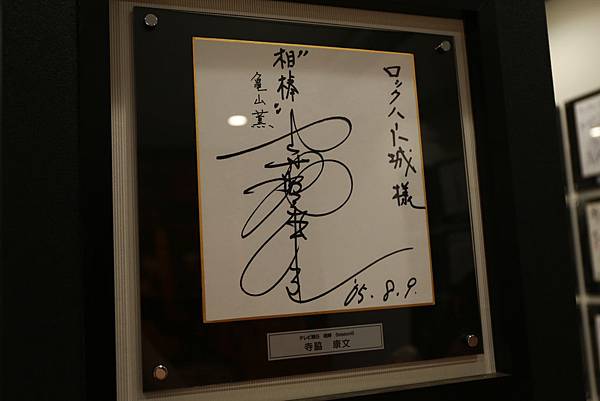 ロックハート城様
"相棒"
亀山薫
'05.8.9.
テレビ朝日 相棒 (season4)
寺脇 康文